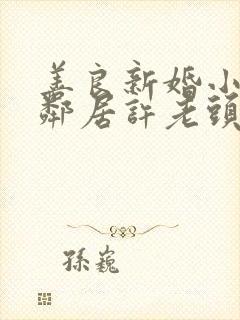 善良新婚小
鄰居許老頭
孫巍